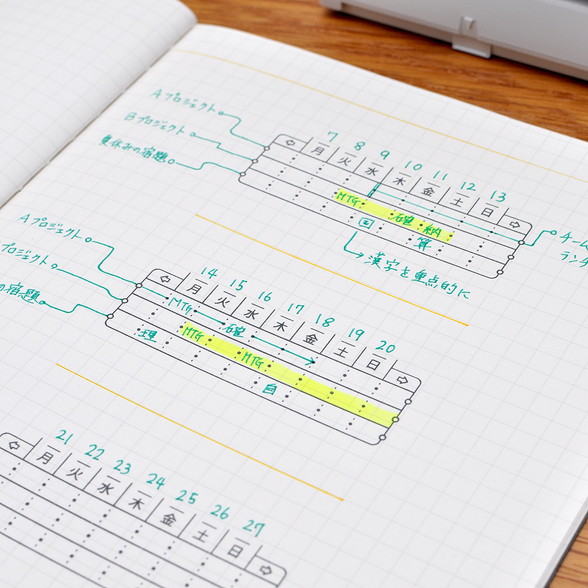 Aプロジェクト
Bプロジェクト
夏休みの宿題
7 8 9 10 11 12 13
月 火 水 木 金 土 日
MTG 確 納
国 算
漢字を重点的に
チーム
ラン
Aプロジェクト
プロジェクト
の宿題
14 15 16 17 18 19 20
月 火 水 木 金 土 日
MTG 確
理 MTG MTG
自
21 22 23 24 25 26 27
月 火 水 木 金 土 日